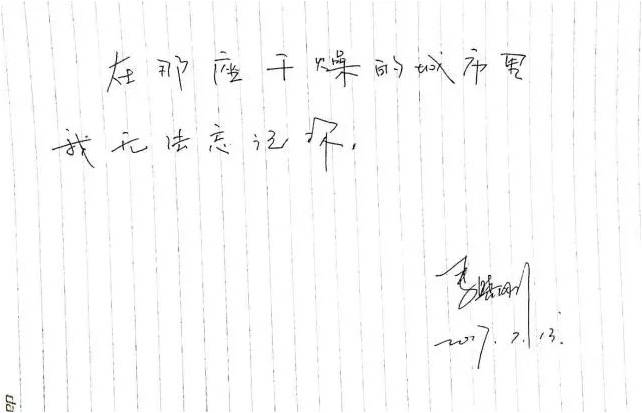 在那座干燥的城市里
我无法忘记你.
2017.7.13.